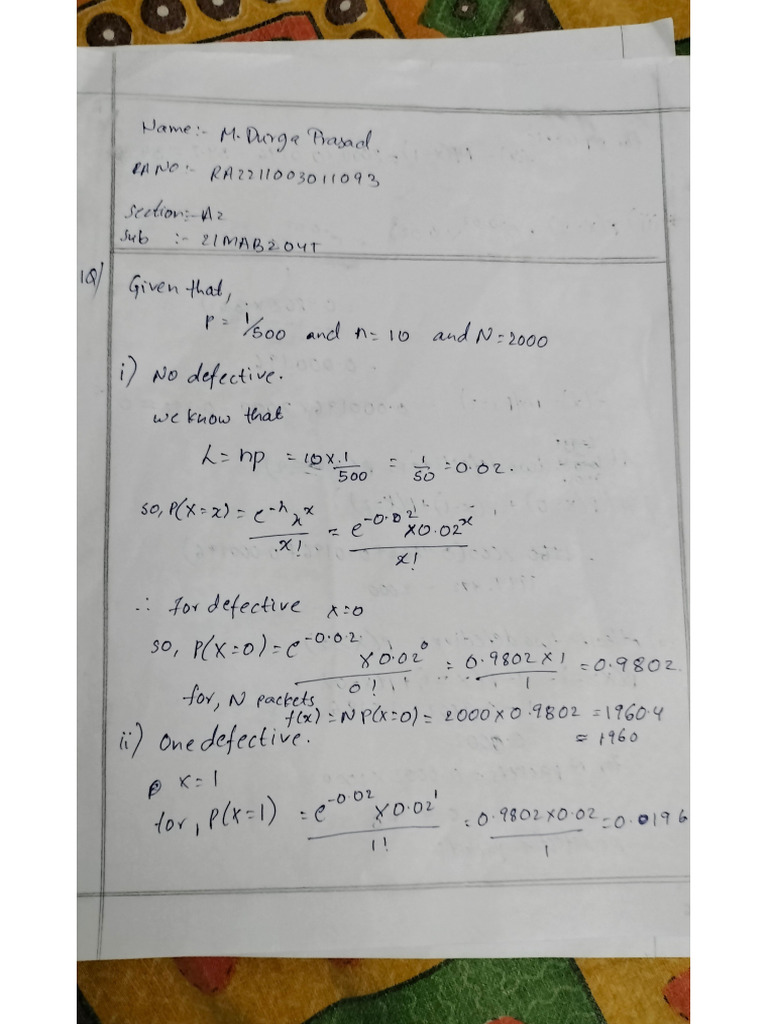 Name:- M. Durga Prasad.
RA NO:- RA2211003011093
Section:- A2
Sub :- 21MAB204T
1Q) Given that,
P = 1/500 and n = 10 and N = 2000
i) No defective.
we know that
λ = np = 10 × 1/500 = 1/50 = 0.02.
so, P(X=x) = e^-λ λ^x / x! = e^-0.02 × 0.02^x / x!
∴ for defective x=0
so, P(X=0) = e^-0.02 × 0.02^0 / 0! = 0.9802 × 1 / 1 = 0.9802.
for, N packets
f(x) = NP(X=0) = 2000 × 0.9802 = 1960.4
= 1960
ii) One defective.
x=1
for, P(X=1) = e^-0.02 × 0.02^1 / 1! = 0.9802 × 0.02 / 1 = 0.0196